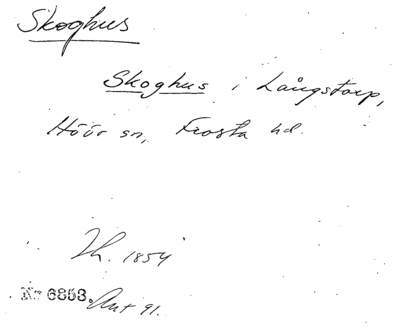 Skoghus
Skoghus i Långstorp,
Höör sn, Frosta hd.
Th. 1854
Nr 6858. Ant 91.